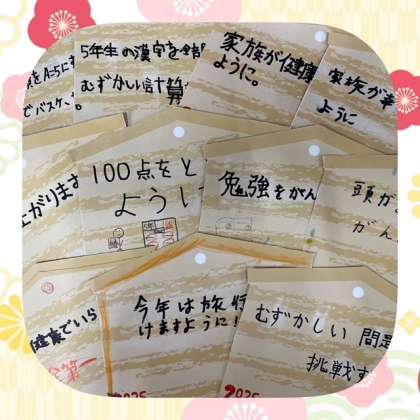 5年生の漢字を
むずかしい計算
家族が健康
ように。
家族が
ように
でバスケ
上がります
100点をと
ように
勉強をがん
頭が
がん
健康でいら
第一
今年は旅行
けますように!
2025
むずかしい問題
挑戦す
2025